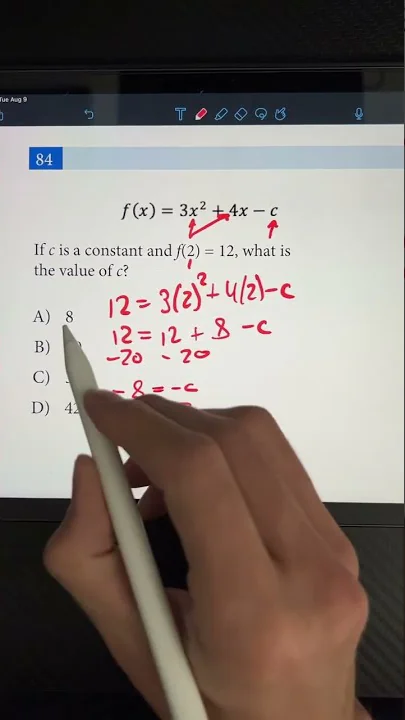 Tue Aug 9
T
84
f(x) = 3x² + 4x − c
If c is a constant and f(2) = 12, what is
the value of c?
12 = 3(2)² + 4(2) − c
A) 8
12 = 12 + 8 − c
B)
-20 - 20
C)
- 8 = -c
D) 42